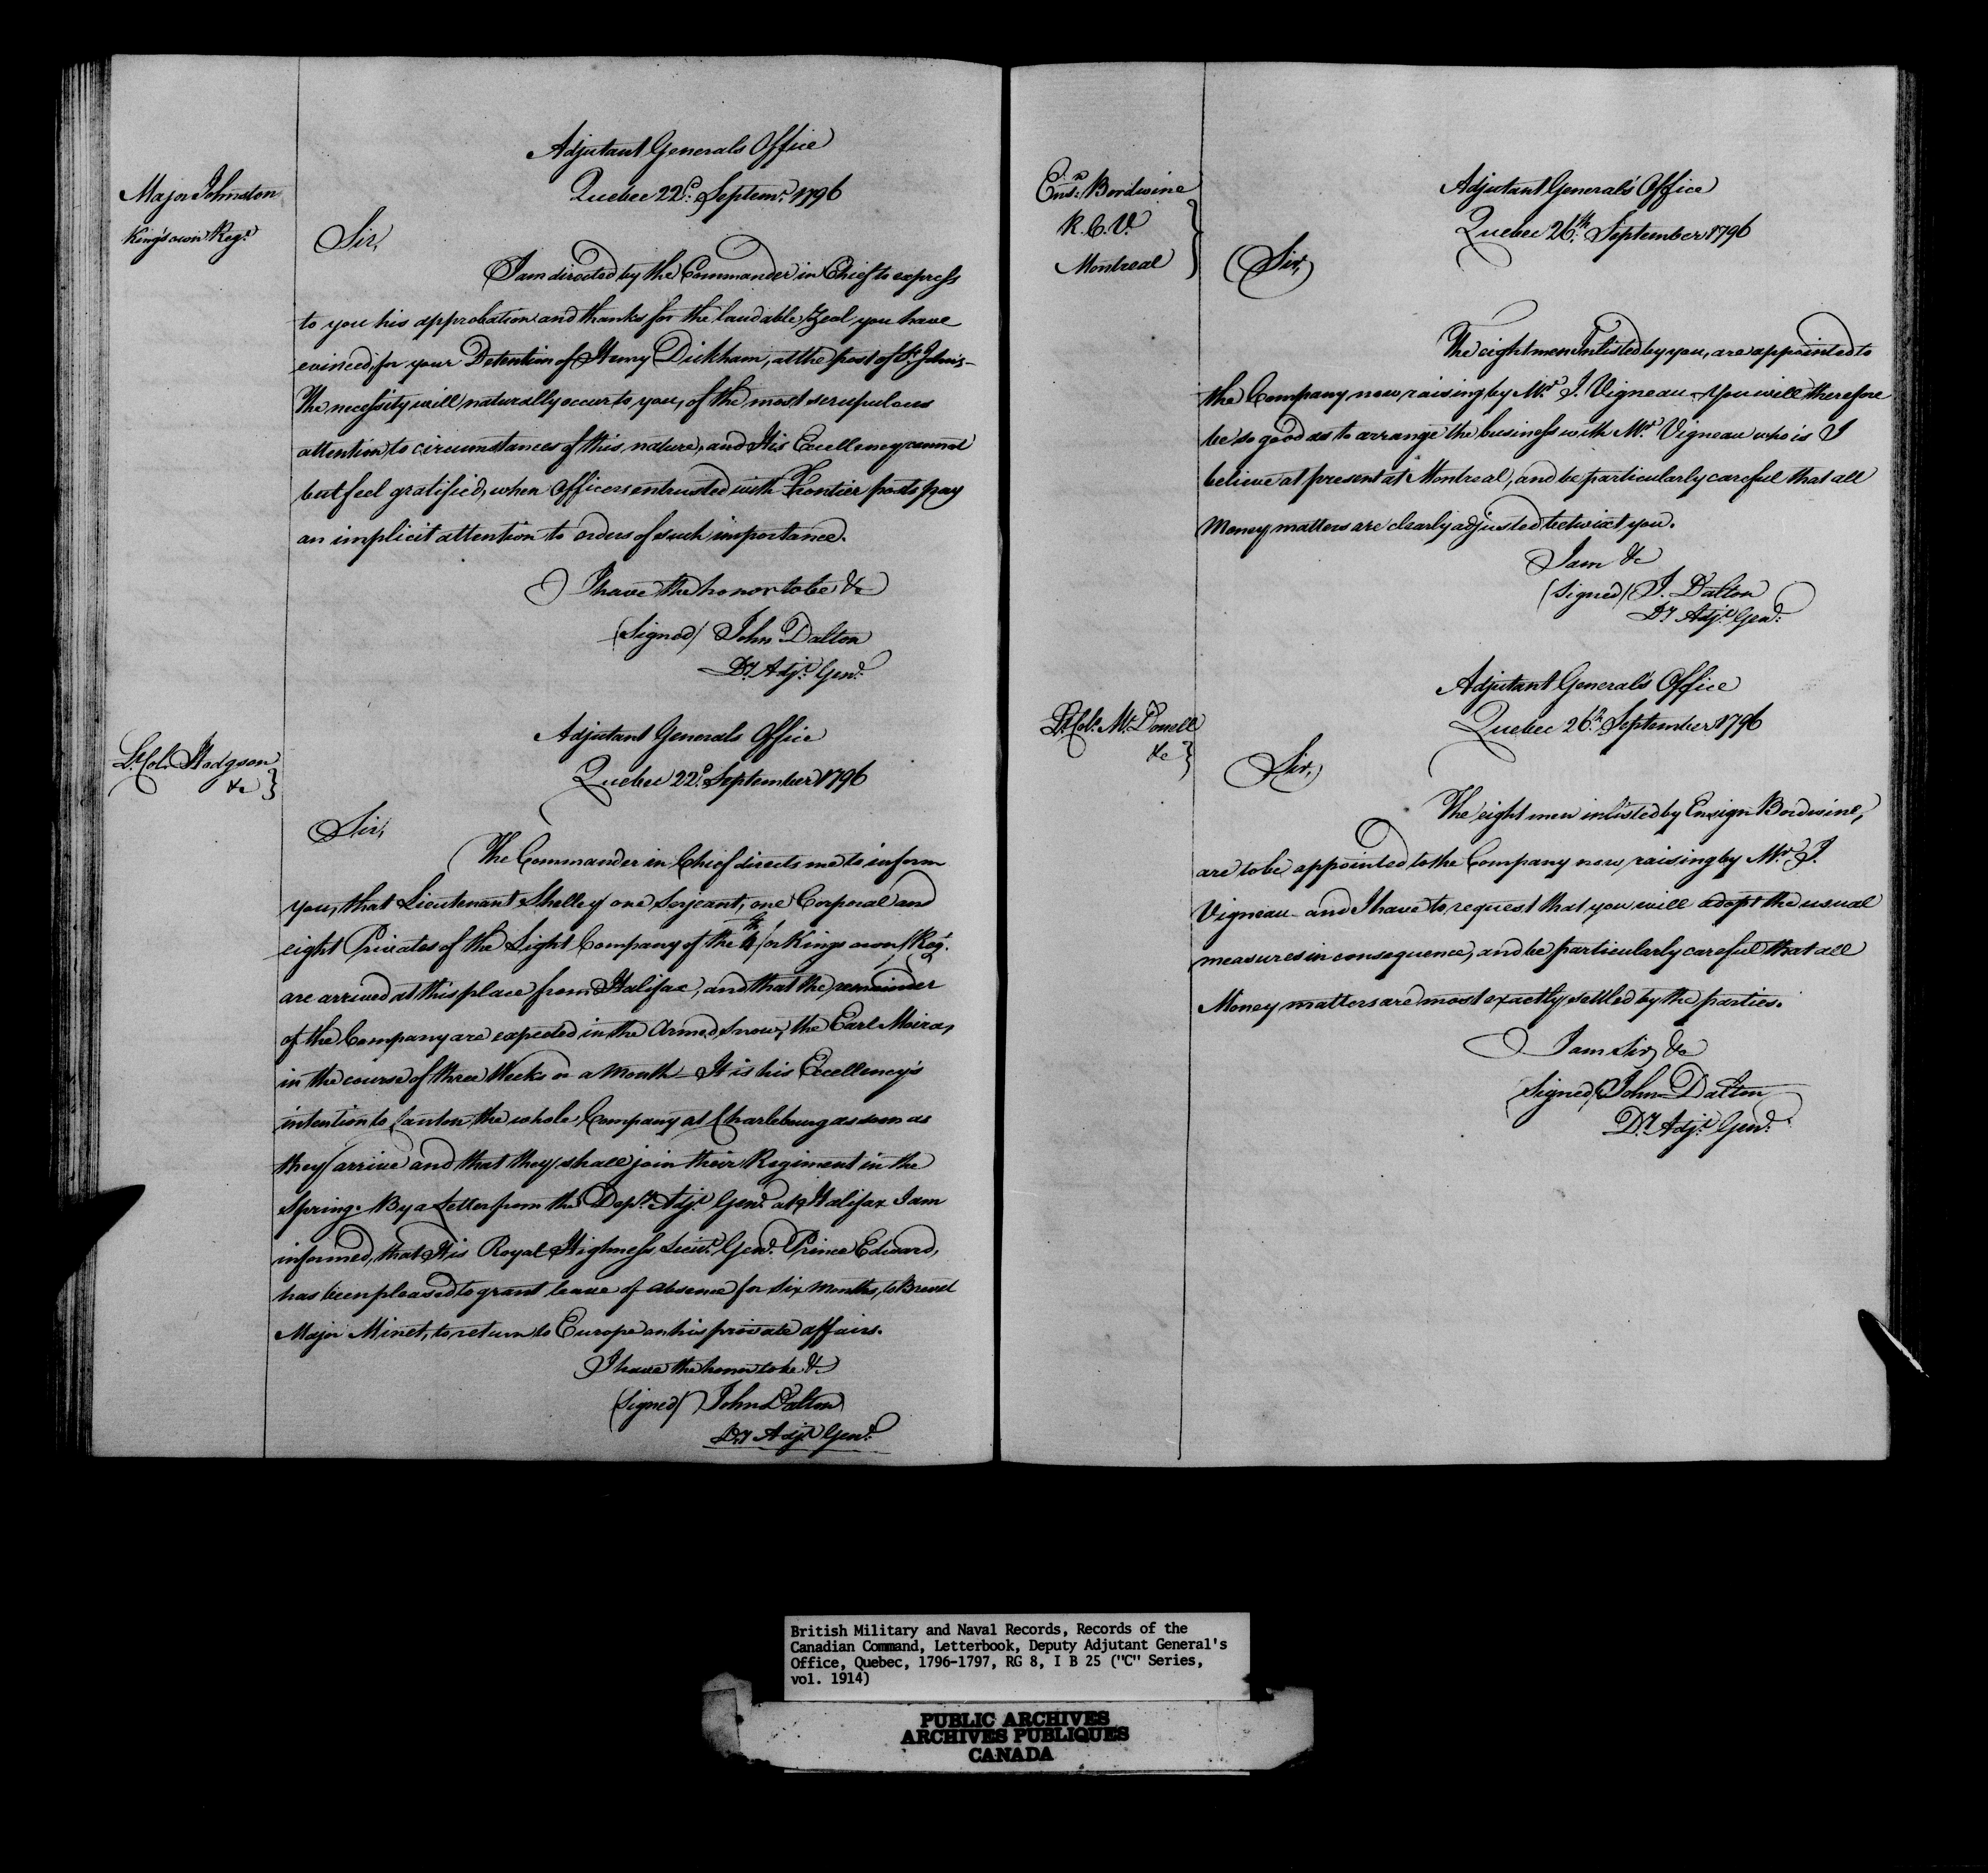 Adjutant Generals Office
Quebec 22d. Septemr. 1796
Major Johnston
King's own Regt.
Sir,
I am directed by the Commander in Chief to express
to you his approbation and thanks for the laudable Zeal you have
evinced, for your Detention of Henry Dickham, at the post of St. John's –
The necessity will naturally occur to you, of the most scrupulous
attention to circumstances of this nature, and His Excellency cannot
but feel gratified, when Officers entrusted with Frontier posts pay
an implicit attention to orders of such importance.
I have the honor to be &c
(Signed) John Dalton
Dy. Adjt. Genl.
Adjutant Generals Office
Quebec 22d. September 1796
Lt. Col. Hodgson
&c }
Sir,
The Commander in Chief directs me to inform
you, that Lieutenant Shelley one Serjeant, one Corporal and
eight Privates of the Light Company of the 4th (or Kings own) Regt.
are arrived at this place from Halifax, and that the remainder
of the Company are expected in the Armed Snow, the Earl Moira,
in the course of three Weeks or a Month – It is his Excellency's
intention to Canton the whole Company at Charlebourg as soon as
they arrive and that they shall join their Regiment in the
Spring. By a Letter from the Depy. Adjt. Genl. at Halifax I am
informed, that His Royal Highness Lieut. Genl. Prince Edward,
has been pleased to grant leave of absence for Six Months, to Brevet
Major Minet, to return to Europe on his private affairs.
I have the honor to be &c
(Signed) John Dalton
Dy Adjt Genl.
Ensn. Bordwine
R.C.V.
Montreal }
Adjutant General's Office
Quebec 26th. September 1796
Sir,
The eight men Inlisted by you, are appointed to
the Company now raising by Mr. J. Vigneau – You will therefore
be so good as to arrange the business with Mr. Vigneau who is I
believe at present at Montreal, and be particularly careful that all
Money matters are clearly adjusted betwixt you.
I am &c
(Signed) J. Dalton
Dy Adjt. Genl.
Adjutant General's Office
Quebec 26th. September 1796
Lt. Col. Mc.Donell
&c }
Sir,
The eight men inlisted by Ensign Bordwine,
are to be appointed to the Company now raising by Mr. J.
Vigneau – and I have to request that you will adopt the usual
measures in consequence, and be particularly careful that all
Money matters are most exactly settled by the parties.
I am Sir, &c
(Signed) John Dalton
Dy. Adjt. Genl.
British Military and Naval Records, Records of the
Canadian Command, Letterbook, Deputy Adjutant General's
Office, Quebec, 1796-1797, RG 8, I B 25 ("C" Series,
vol. 1914)
PUBLIC ARCHIVES
ARCHIVES PUBLIQUES
CANADA